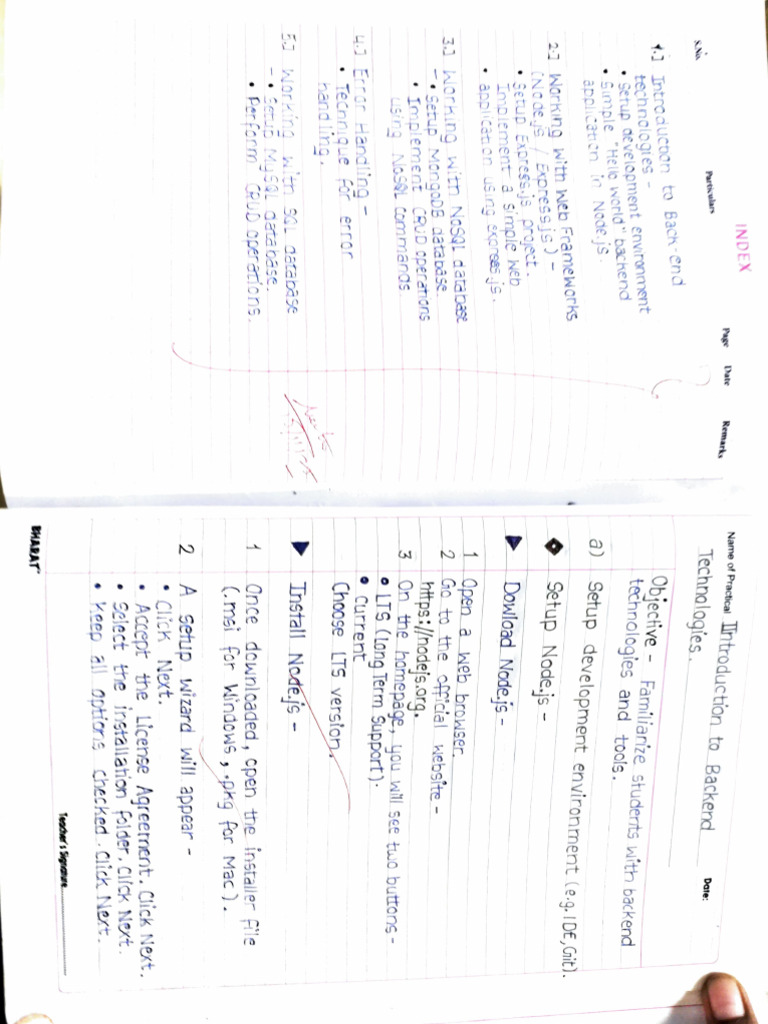 INDEX
S.No. Particulars Page Date Remarks
1.] Introduction to Back-end
technologies -
• Setup development environment
• Simple "Hello World" backend
application in Node.js.
2.] Working with Web Frameworks
(Node.js / Express.js) -
• Setup Express.js project.
Implement a simple web
• application using express.js.
3.] Working with NoSQL database
- • Setup MongoDB database
• Implement CRUD operations
using NoSQL commands
4.] Error Handling -
• Technique for error
handling.
5.] Working with SQL database
- • Setup MySQL database.
• Perform CRUD operations.
Name of Practical Introduction to Backend Date:
Technologies.
Objective - Familianize students with backend
technologies and tools.
a) Setup development environment (e.g. IDE, Git).
Setup Node.js -
Dowload Node.js -
1 Open a web browser.
2 Go to the official website -
https://nodejs.org.
3 On the homepage, you will see two buttons -
• LTS (Long Term Support).
• Current
Choose LTS version.
Install Node.js -
1 Once downloaded, open the installer file
(.msi for Windows, .pkg for Mac).
2 A setup wizard will appear -
• Click Next.
• Accept the License Agreement. Click Next.
• Select the installation folder. Click Next.
• Keep all options checked. Click Next.
BHARAT
Teacher's Signature